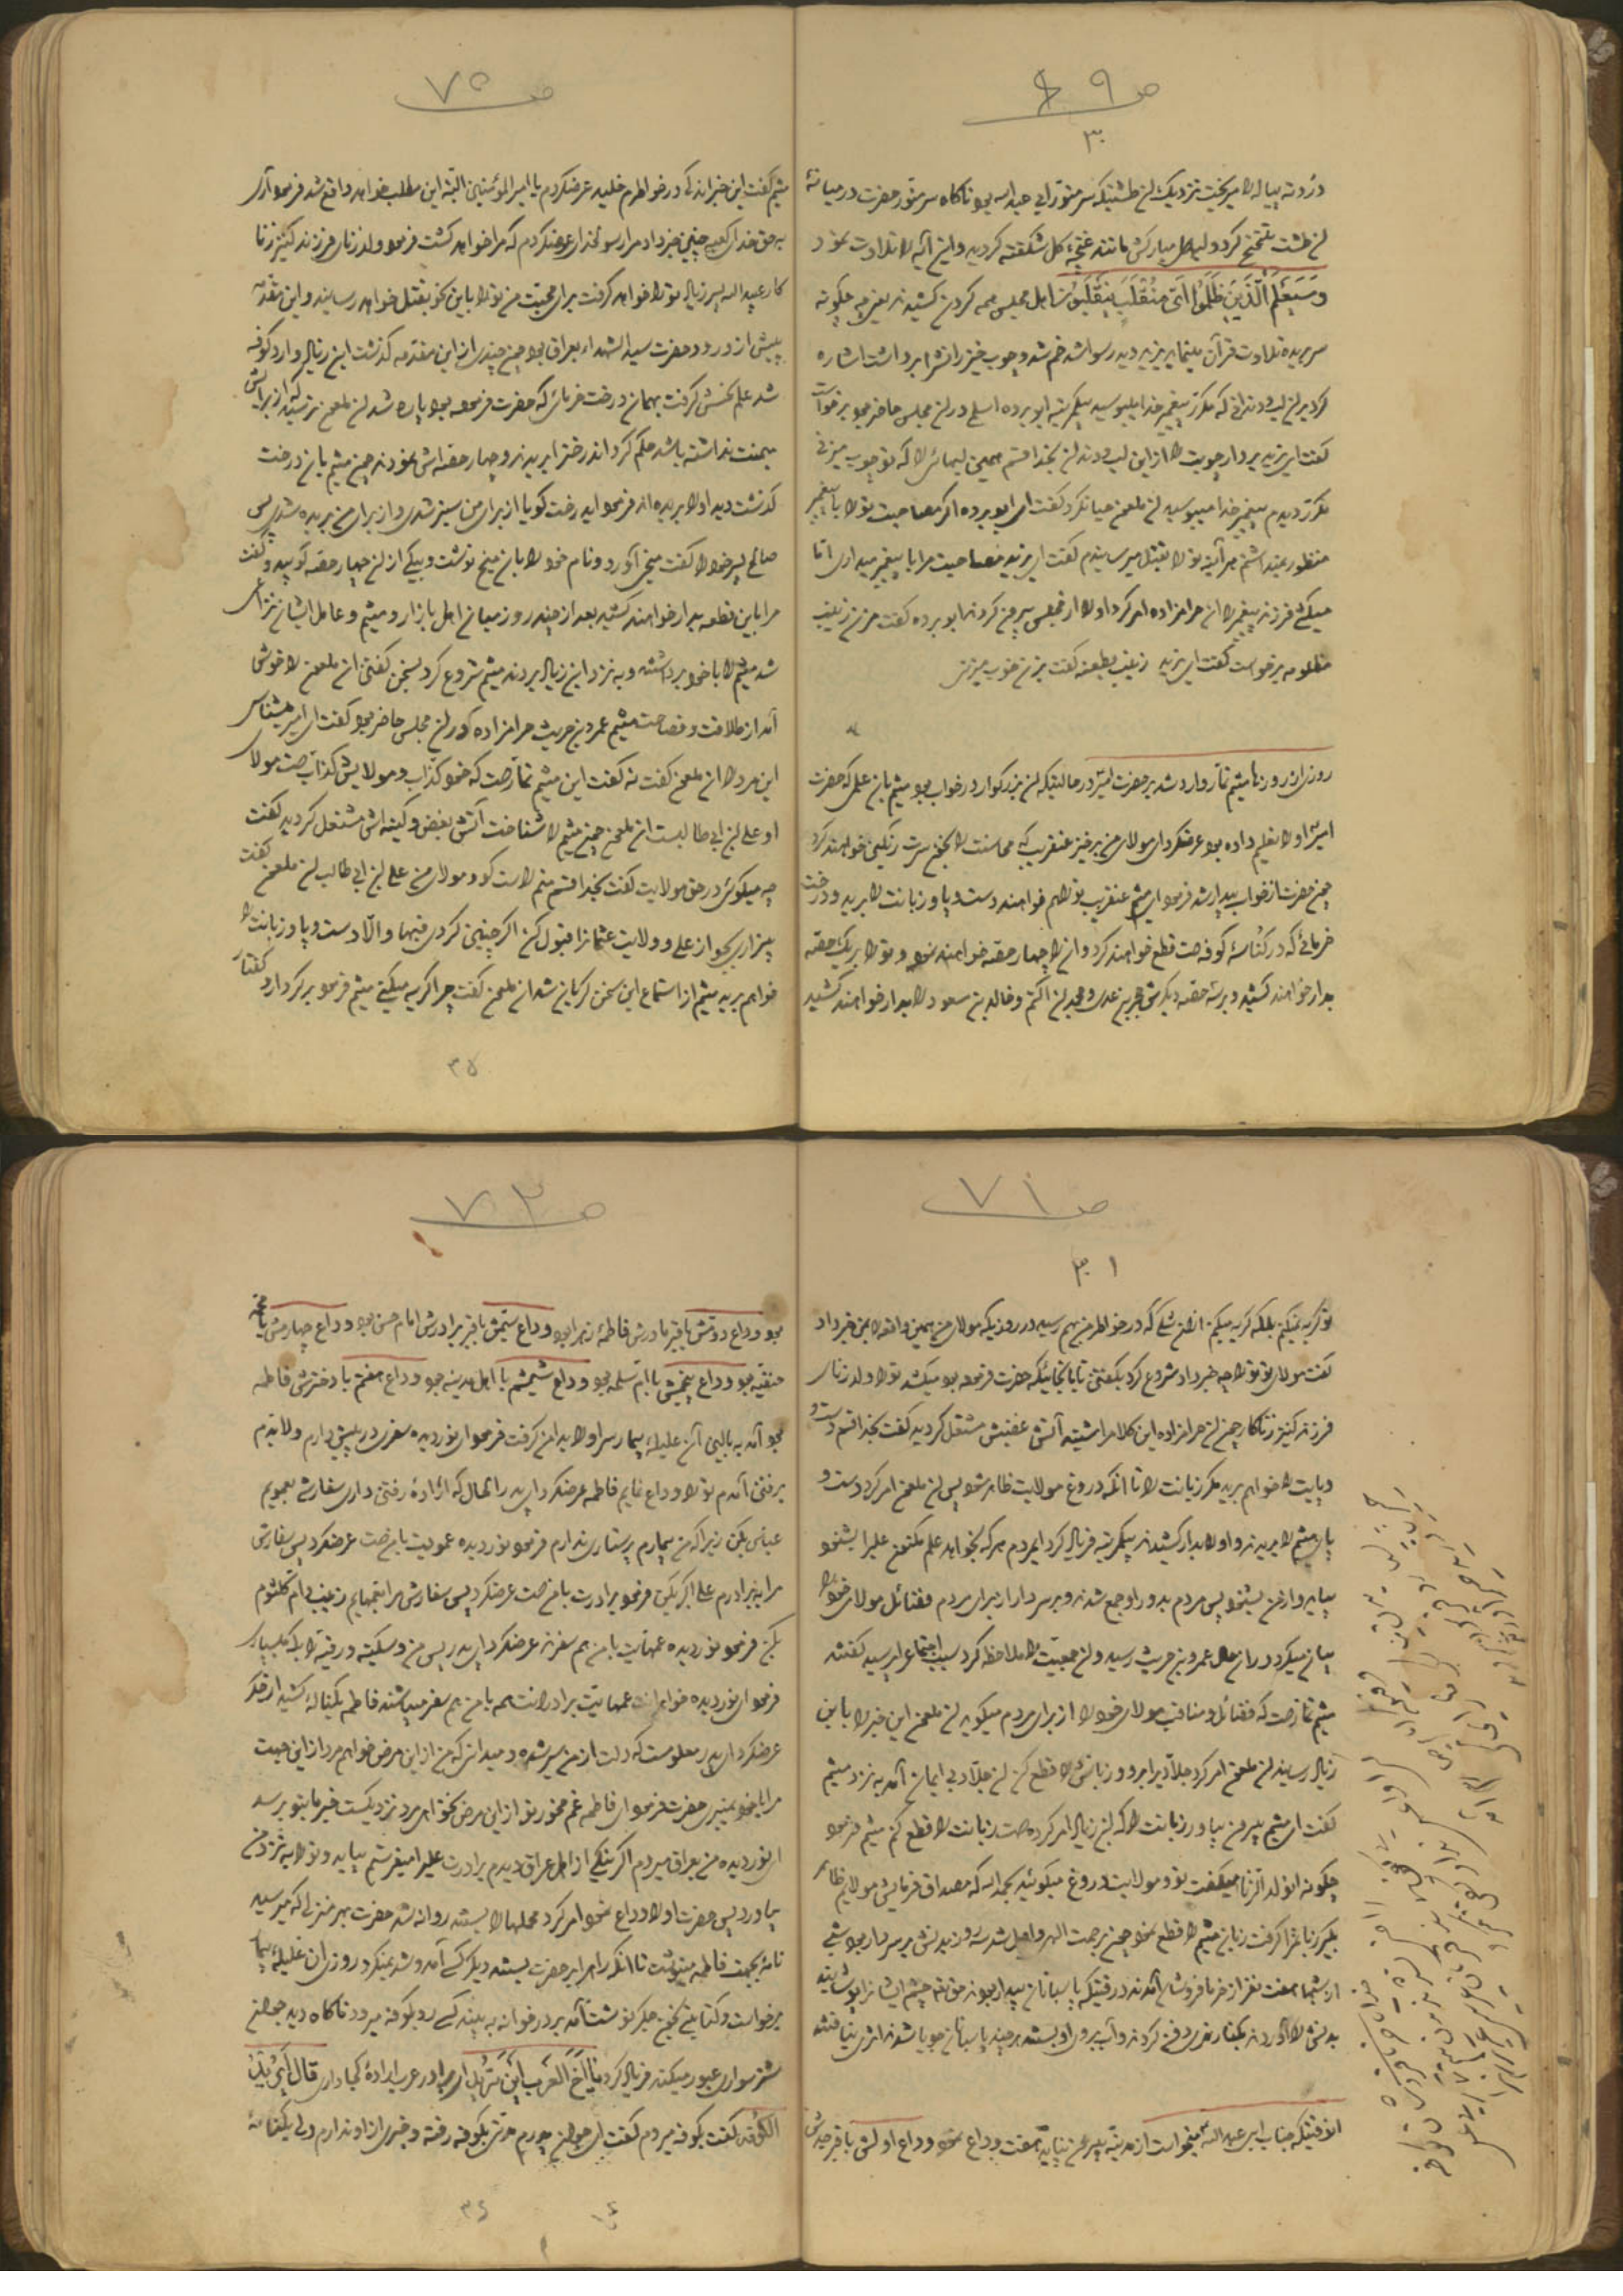 ص ۶۹
۳۰
دردته پیاله را میریخت نزدیک آن طشتیکه سر منور ابی عبدالله بود ناگاه سر منور حضرت در میانهٔ
آن طشت تنحنح کرد و لبهای مبارکش مانند غنچهٔ گل شکفته گردید و این آیه را تلاوت نمود
وَسَيَعْلَمُ الَّذِينَ ظَلَمُوا أَيَّ مُنْقَلَبٍ يَنْقَلِبُونَ اهل مجلس همه گردن کشیدند یعنی چه چگونه
سر بریده تلاوت قرآن مینماید یزید دید رسوا شد خم شد و چوب خیزران را برداشت اشاره
کرد بر آن لب و دندانی که مکرر پیغمبر خدا میبوسید پیکمرتبه ابو برده اسلمی در آن مجلس حاضر بود برخواست
گفت ای یزید بردار چوبت را از این لب و دندان بخدا قسم همین لبهائی را که تو چوب میزنی
مکرر دیدم پیغمبر خدا میبوسید آن ملعون حیا نکرد گفت ای ابو برده اگر مصاحبت تو را با پیغمبر
منظور نمیداشتم هر آینه تو را بقتل میرسانیدم گفت ای یزید مصاحبت مرا با پیغمبر میداری اما
میکشی فرزند پیغمبر را آن حرامزاده امر کرد او را از مجلس بیرون کردند ابو برده گفت مزن زینب
مظلومه برخواست گفت ای یزید زینب بطعنه گفت بزن خوب میزنی
روزی از روزها میثم تمار وارد شد بر حضرت امیر در حالتیکه آن بزرگوار در خواب بود میثم بآن علمی که حضرت
امیر او را تعلیم داده بود عرضکرد ای مولای من برخیز عنقریب که محاسنت را بخون سرت رنگین خواهند کرد
چون حضرت از خواب بیدار شد فرمود ای میثم عنقریب تو را هم خواهند دست و پا و زبانت را برید و درخت
خرمائی که در کناسهٔ کوفه است قطع خواهند کرد و آن را چهار حصه خواهند نمود و تو را بر یک حصه
بدار خواهند کشید و بر سه حصه دیگرش حجر بن عدی و محمد بن اکثم و خالد بن مسعود را بدار خواهند کشید
ص ۷۰
میثم گفت این خبر اندکی در خواطرم خلید عرضکردم یا امیرالمؤمنین البته این مطلب خواهد واقع شد فرمود آری
بحق خدای کعبه چنین خبر داد مرا رسولخدا عرضکردم که مرا خواهد کشت فرمود ولد زنای فرزند کنیز زنا
کار عبیدالله پسر زیاد تو را خواهد گرفت برای محبت من تو را باین نحو بقتل خواهد رسانید و این مقدمه
پیش از ورود حضرت سید الشهداء بعراق بود چون چندی از این مقدمه گذشت ابن زیاد وارد کوفه
شد علم نحسش گرفت بهمان درخت خرمائی که حضرت فرموده بود پاره شد آن ملعون ترسید که از برایش
میمنت نداشته باشد حکم کرد آندرخت را بریدند و چهار حصه اش نمودند چون میثم بآن درخت
گذشت دید او را بریده اند فرمود ایدرخت گویا از برای من سبز شدی و از برای من بریده شدی پس
صالح پسر خود را گفت میخی آورد و نام خود را بآن میخ نوشت و بیکی از آن چهار حصه کوبید و گفت
مرا باین قطعه بدار خواهند کشید بعد از چند روز میان اهل بازار و میثم و عامل ایشان نزاعی
شد میثم را با خود برداشته و به نزد ابن زیاد بردند میثم شروع کرد بسخن گفتن آن ملعون را خوش
آمد از طلاقت و فصاحت میثم عمرو بن حریث حرامزاده که در آن مجلس حاضر بود گفت ای امیر میشناسی
این مرد را آن ملعون گفت نه گفت این میثم تمار است که خود کذاب و مولایش کذاب است مولای
او علی بن ابی طالبست آن ملعون چون میثم را شناخت آتش بغض و کینه اش مشتعل گردید گفت
چه میگوئی در حق مولایت گفت بخدا قسم منم راست گو و مولای من علی بن ابی طالب آن ملعون گفت
بیزاری بجو از علی و ولایت عثمانرا قبول کن اگر چنین کردی فبها و الّا دست و پا و زبانت را
خواهم برید میثم از استماع این سخن گریان شد آن ملعون گفت چرا گریه میکنی میثم فرمود بر کردار و گفتار
۳۵
ص ۷۱
۳۱
تو گریه نمیکنم بلکه گریه میکنم از آن شکی که در خواطر من بهم رسید در روزیکه مولای من بهمین واقعه بمن خبر داد
گفت مولای تو تو را چه خبر داد شروع کرد بگفتن تا بآنجائیکه حضرت فرموده بود میکشد تو را ولد زنای
فرزند کنیز زناکار چون آن حرامزاده این کلام را شنید آتش غضبش مشتعل گردید گفت بخدا قسم دست و
پایت را خواهم برید مگر زبانت را تا آنکه دروغ مولایت ظاهر شود پس آن ملعون امر کرد دست و
پای میثم را بریدند و او را بدار کشیدند پیکمرتبه فریاد کرد ایمردم هر که بخواهد علم مکنون علی را بشنود
بیاید و از من بشنود پس مردم بدور او جمع شدند و بر سر دار از برای مردم فضائل مولای خود را
بیان میکرد در آن حال عمرو بن حریث رسید و آن جمعیت را ملاحظه کرد سبب اجتماع پرسید گفتند
میثم تمار است که فضائل و مناقب مولای خود را از برای مردم میگوید آن ملعون این خبر را بابن
زیاد رسانید آن ملعون امر کرد جلاد را برو و زبانش را قطع کن آن جلاد بی ایمان آمد به نزد میثم
گفت ای میثم بیرون بیاور زبانت را که ابن زیاد امر کرده است زبانت را قطع کنم میثم فرمود
چگونه آنولد الزنا میگفت تو و مولایت دروغ میگوئید بحمد الله که مصداق فرمایش مولایم ظاهر
بگیر زبانمرا گرفت زبان میثم را قطع نمود چون برحمت الهی واصل شد سه روز بدنش بر سر دار بود شبی
از شبها هفت نفر از خرما فروشان آمدند در وقتیکه پاسبانان بیدار بودند حق تعالی چشم ایشانرا پوشانید
بدنش را آوردند بکنار نهری دفن کردند و آب بروی او بستند هر چند پاسبانان جویا شدند اثری نیافتند
آنوقتیکه جناب ابی عبدالله میخواست از مدینه بیرون بیاید هفت وداع نمود وداع اولش با قبر جدش
ص ۷۲
بود وداع دومش با قبر مادرش فاطمه زهرا بود وداع سیمش با قبر برادرش امام حسن بود وداع چهارمش با محمد
حنفیه بود وداع پنجمش با ام سلمه بود وداع ششمش با اهل مدینه بود وداع هفتم با دخترش فاطمه
بود آمد به بالین آن علیله بیمار سر او را بدامن گرفت فرمود ای نوردیده سفری در پیش دارم و لابدم
برفتن آمدم تو را وداع نمایم فاطمه عرضکرد ای پدر الحال که ارادهٔ رفتن داری سفارش بعمویم
عباس بکن زیرا که من بیمارم پرستاری ندارم فرمود نوردیده عمویت با من است عرضکرد پس سفارش
مرا به برادرم علی اکبر بکن فرمود برادرت با من است عرضکرد پس سفارش مرا بعمهایم زینب و ام کلثوم
بکن فرمود نوردیده عمهایت با من هم سفرند عرضکرد ای پدر پس من و سکینه و رقیه را بکه میسپاری
فرمود ای نوردیده خواهرانت عمهایت برادرانت همه با من هم سفر میباشند فاطمه یکناله کشید از جگر
عرضکرد ای پدر معلومست که دلت از من سیر شده و میدانی که من از این مرض خواهم مرد از این جهت
مرا با خود نمیبری حضرت فرمود ای فاطمه غم مخور تو از این مرض نخواهی مرد نزدیکست خبر ما بتو برسد
ای نوردیده من بعراق میروم اگر نیکی از اهل عراق دیدم برادرت علی را میفرستم بیاید و تو را به نزد من
بیاورد پس حضرت او را وداع نمود امر کرد محملها را بستند روانه شد حضرت بهر منزلی که میرسید
نامهٔ بجهت فاطمه مینوشت تا آنکه راه را بر حضرت بستند دیگر کسی آمد و شد نمیکرد روزی آن علیلهٔ بیمار
برخواست و کتابتی بخون جگر نوشت آمد بر در خوانه به بیند کسی رو بکوفه میرود ناگاه دید جوانی
شتر سواری عبور میکند فریاد کرد یا اَخَ الْعَرَبِ أَيْنَ تُرِيدُ ای برادر عرب ارادهٔ کجا داری قال اُرِيدُ
الْكُوفَة گفت بکوفه میروم گفت ای جوان پدرم مدتی بکوفه رفته و خبری از او ندارم ولی یکنامهٔ
۳۶